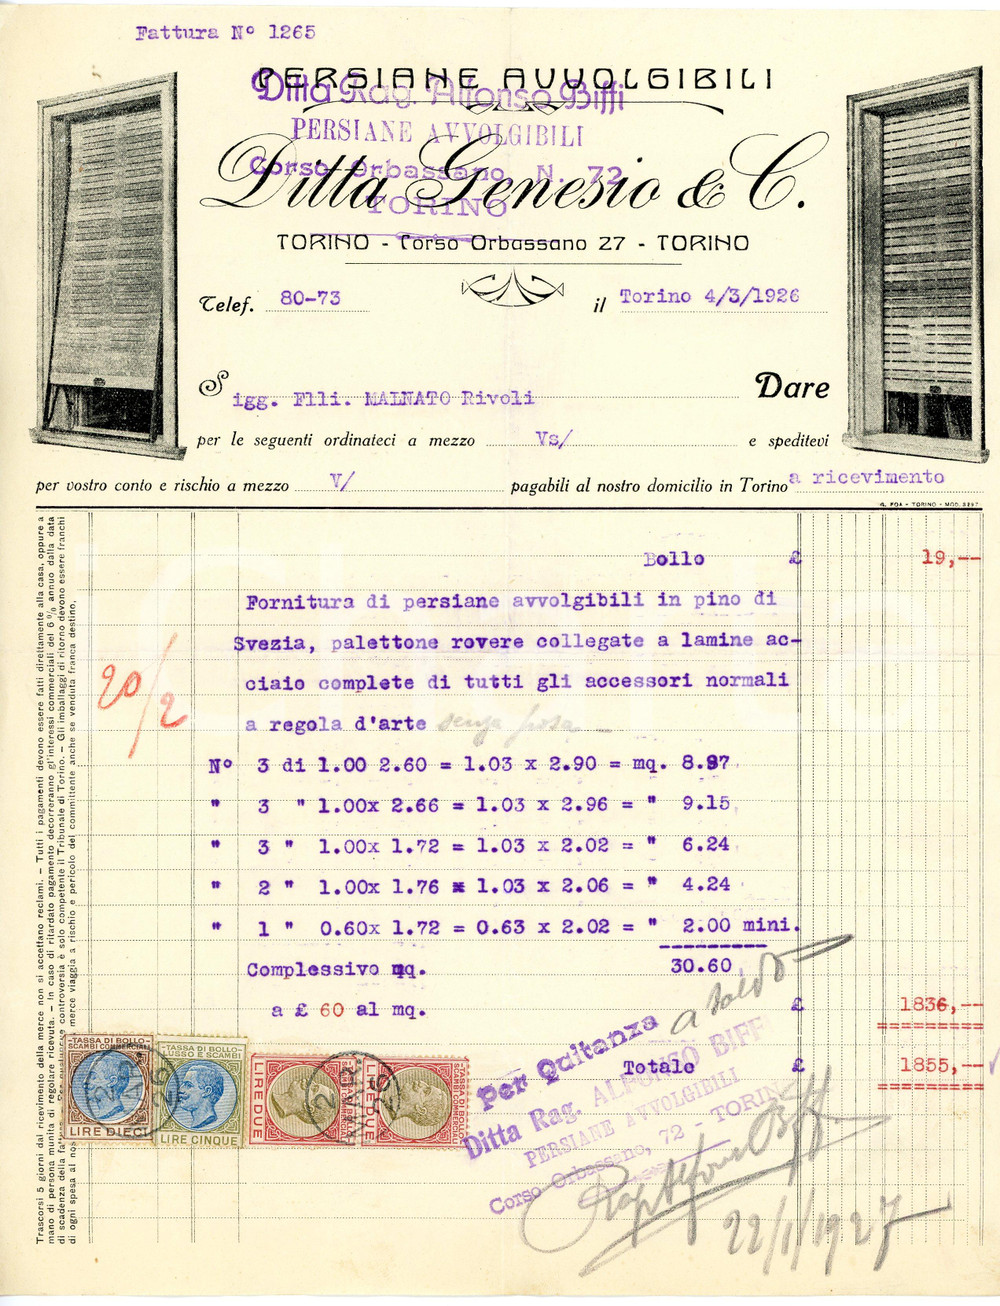 Fattura Nº 1265
PERSIANE AVVOLGIBILI
Ditta Rag. Alfonso Biffi
PERSIANE AVVOLGIBILI
Corso Orbassano, N. 72
TORINO
Ditta Genesio & C.
TORINO - Corso Orbassano 27 - TORINO
Telef. 80-73 il Torino 4/3/1926
Sigg. Flli. MAINATO Rivoli Dare
per le seguenti ordinateci a mezzo Vs/ e speditevi
per vostro conto e rischio a mezzo V/ pagabili al nostro domicilio in Torino a ricevimento
G. FOA - TORINO - MOD. 5297
Bollo £ 19,--
Fornitura di persiane avvolgibili in pino di
Svezia, palettone rovere collegate a lamine ac-
ciaio complete di tutti gli accessori normali
a regola d'arte senza posa
20/2
Nº 3 di 1.00 2.60 = 1.03 x 2.90 = mq. 8.97
" 3 " 1.00x 2.66 = 1.03 x 2.96 = " 9.15
" 3 " 1.00x 1.72 = 1.03 x 2.02 = " 6.24
" 2 " 1.00x 1.76 = 1.03 x 2.06 = " 4.24
" 1 " 0.60x 1.72 = 0.63 x 2.02 = " 2.00 mini.
Complessivo mq. 30.60
a £ 60 al mq. £ 1836,--
Totale £ 1855,--
a saldo
Per Quitanza
Ditta Rag. ALFONSO BIFFI
PERSIANE AVVOLGIBILI
Corso Orbassano, 72 - TORINO
Rag Alfonso Biffi
22/1/1927
TASSA DI BOLLO
SCAMBI COMMERCIALI
LIRE DIECI
TASSA DI BOLLO
LUSSO E SCAMBI
LIRE CINQUE
LIRE DUE
TASSA DI BOLLO
SCAMBI COMMERCIALI
LIRE DUE
TASSA DI BOLLO
SCAMBI COMMERCIALI
Trascorsi 5 giorni dal ricevimento della merce non si accettano reclami. - Tutti i pagamenti devono essere fatti direttamente alla casa, oppure a
mano di persona munita di regolare ricevuta. - In caso di ritardato pagamento decorreranno gl'interessi commerciali del 6% annuo dalla data
di scadenza della controversia è solo competente il Tribunale di Torino. - Gli imballaggi di ritorno devono essere franchi
di ogni spesa al merce viaggia a rischio e pericolo del committente anche se venduta franca destino.